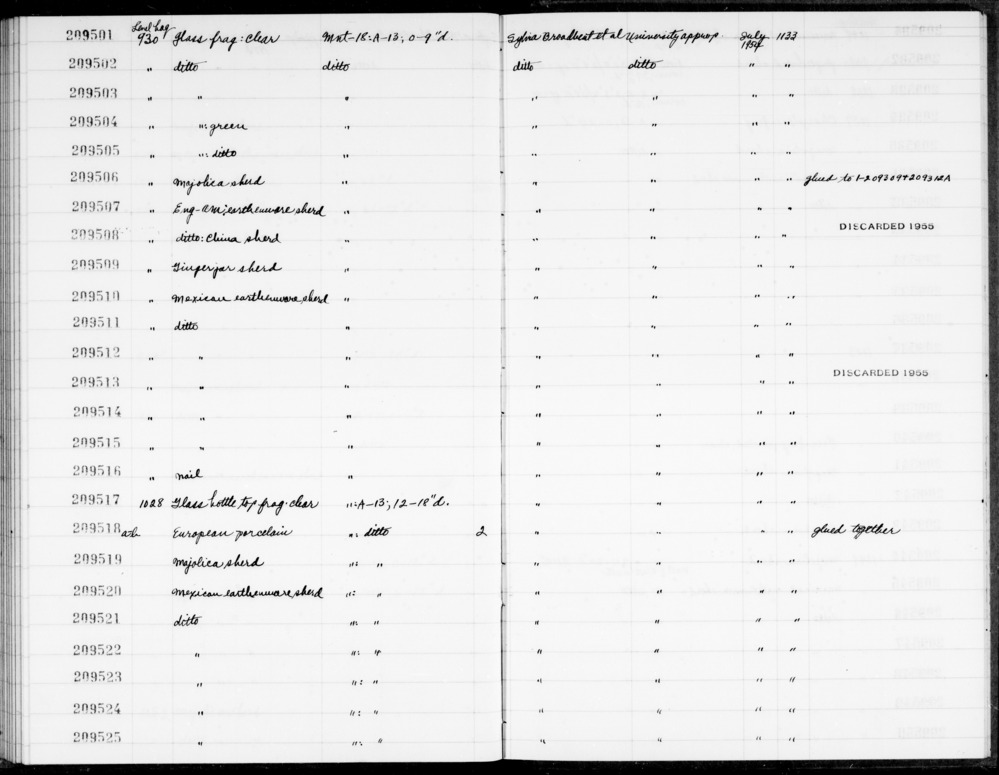 Level bag
209501 930 Glass frag: clear Mnt-18: A-13; 0-9"d. Sylvia Broadbent et al University approp. July 1954 1133
209502 " ditto ditto ditto ditto " "
209503 " " " " " " "
209504 " ": green " " " " "
209505 " ": ditto " " " " "
209506 " Majolica sherd " " " " " glued to 1-209309+209312A
209507 " Eng-Am; earthenware sherd " " " " "
209508 " ditto: China sherd " " " " " DISCARDED 1955
209509 " Gingerjar sherd " " " " "
209510 " Mexican earthenware sherd " " " " "
209511 " ditto " " " " "
209512 " " " " " " "
209513 " " " " " " " DISCARDED 1955
209514 " " " " " " "
209515 " " " " " " "
209516 " nail " " " " "
209517 1028 Glass bottle top frag. clear ": A-13; 12-18"d. " " " "
209518 a+b European porcelain ": ditto 2 " " " " glued together
209519 Majolica sherd ": " " " " "
209520 Mexican earthenware sherd ": " " " " "
209521 ditto ": " " " " "
209522 " ": " " " " "
209523 " ": " " " " "
209524 " ": " " " " "
209525 " ": " " " " "